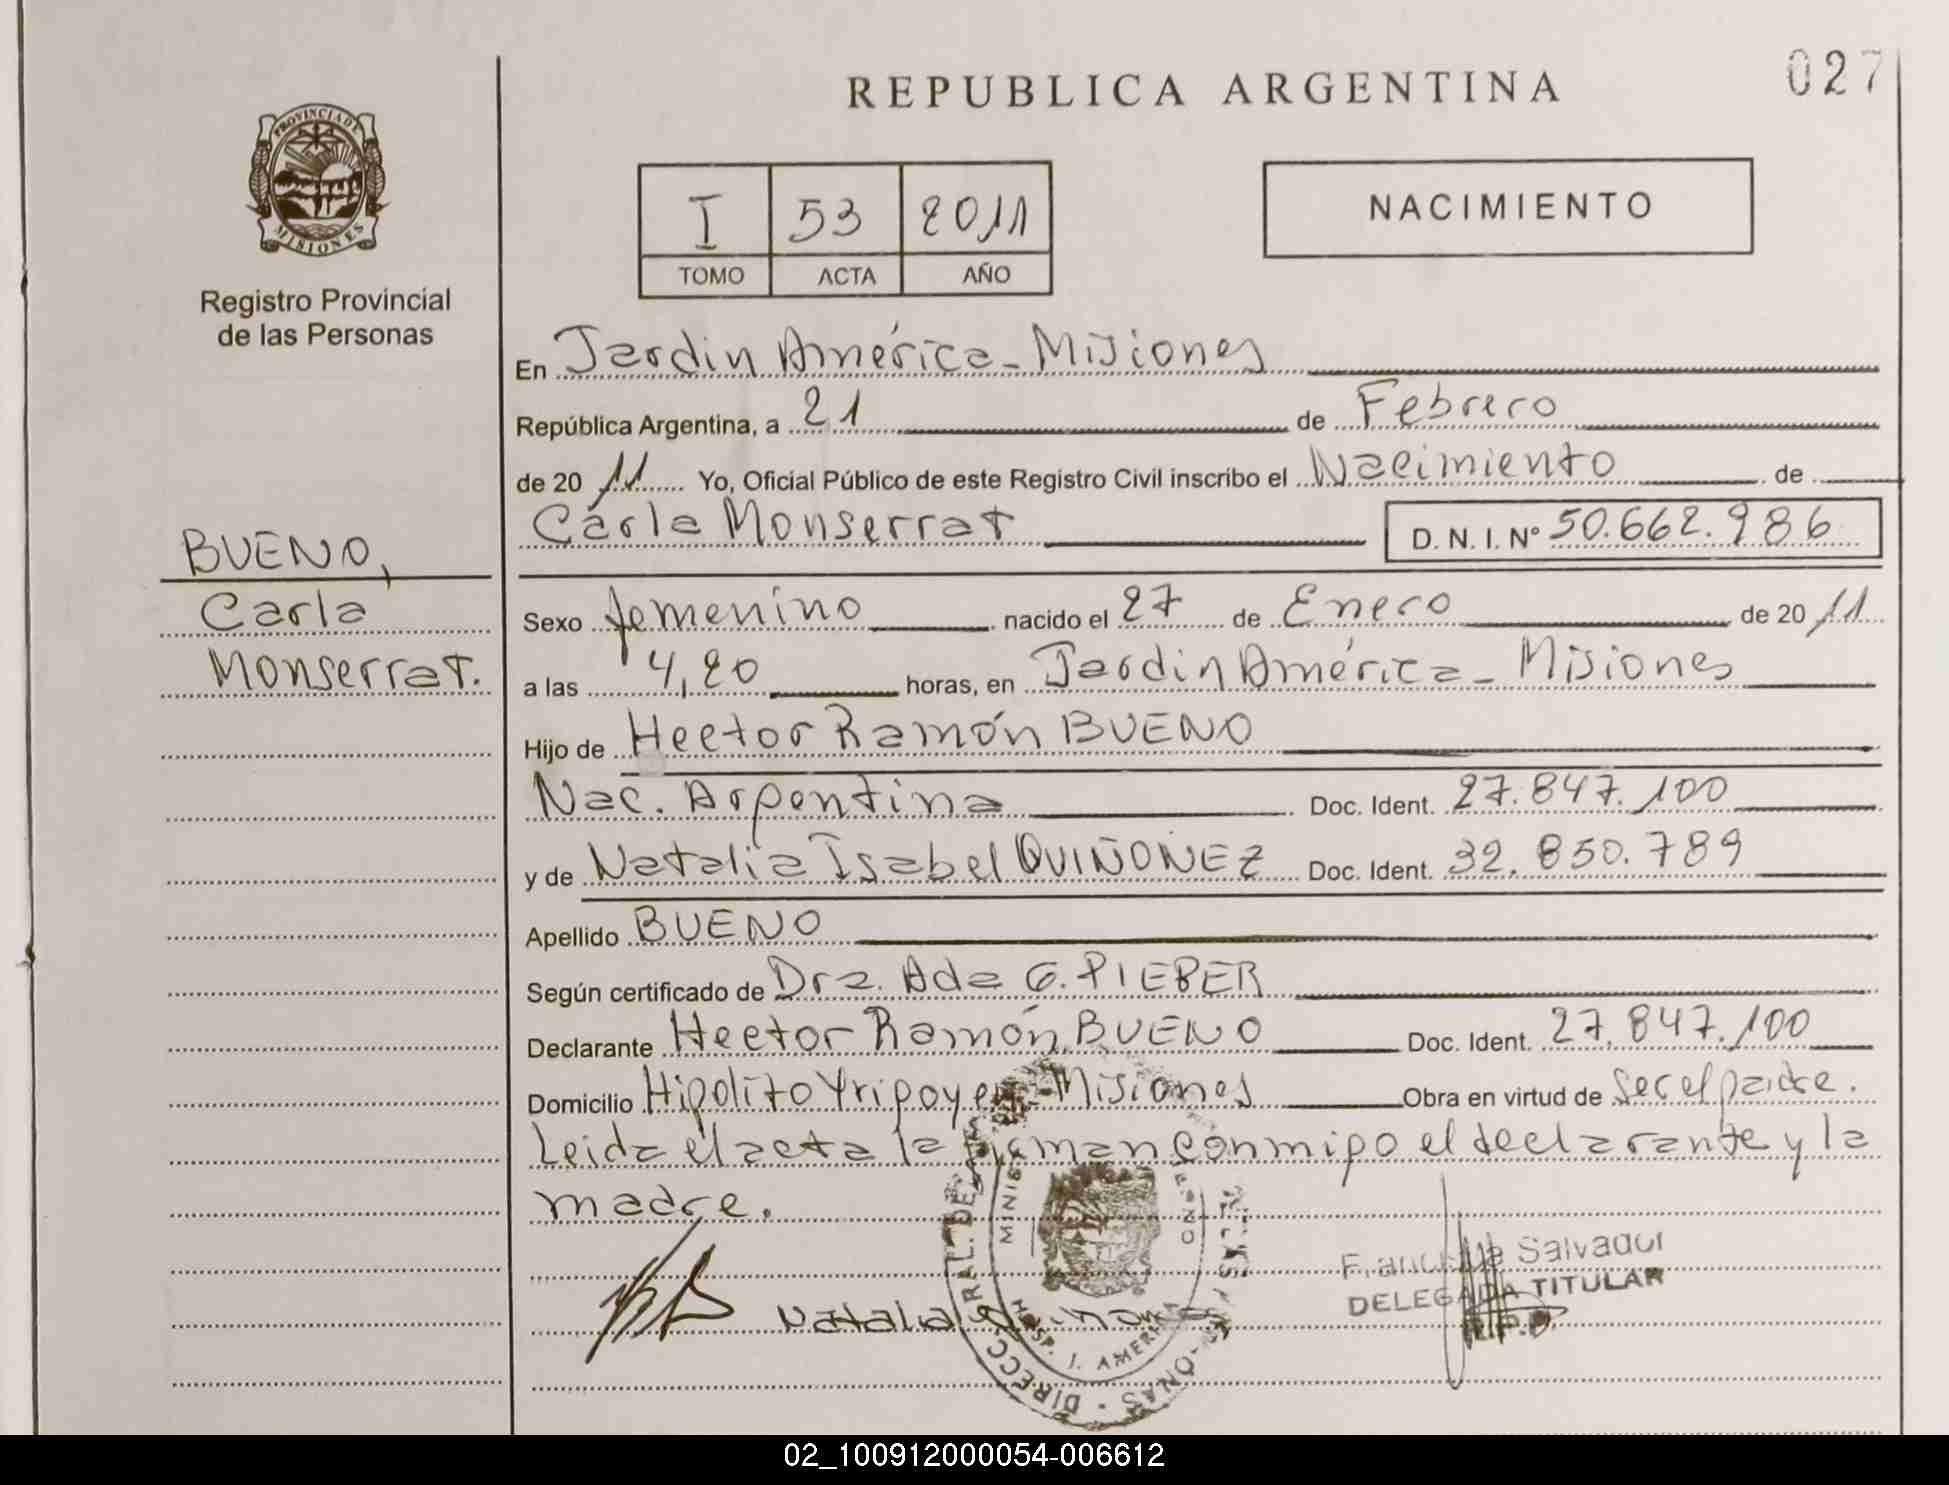 REPUBLICA ARGENTINA
027
PROVINCIA DE
MISIONES
Registro Provincial
de las Personas
I 53 2011
TOMO ACTA AÑO
NACIMIENTO
En Jardin América - Misiones
República Argentina, a 21 de Febrero
de 20 11 Yo, Oficial Público de este Registro Civil inscribo el Nacimiento de
Carla Monserrat D. N. I. Nº 50.662.986
BUENO,
Carla
Monserrat.
Sexo femenino nacido el 27 de Enero de 20 11
a las 4,20 horas, en Jardin América - Misiones
Hijo de Hector Ramón BUENO
Nac. Argentina Doc. Ident. 27.847.100
y de Natalia Isabel QUIÑONEZ Doc. Ident. 32.850.789
Apellido BUENO
Según certificado de Dra. Ada G. PIEBER
Declarante Hector Ramón BUENO Doc. Ident. 27.847.100
Domicilio Hipolito Yrigoyen - Misiones Obra en virtud de ser el padre.
Leida el acta la firman conmigo el declarante y la
madre.
Natalia
Salvador
DELEGADA TITULAR
R.P.P.
HOSP. J. AMERICA
02_100912000054-006612